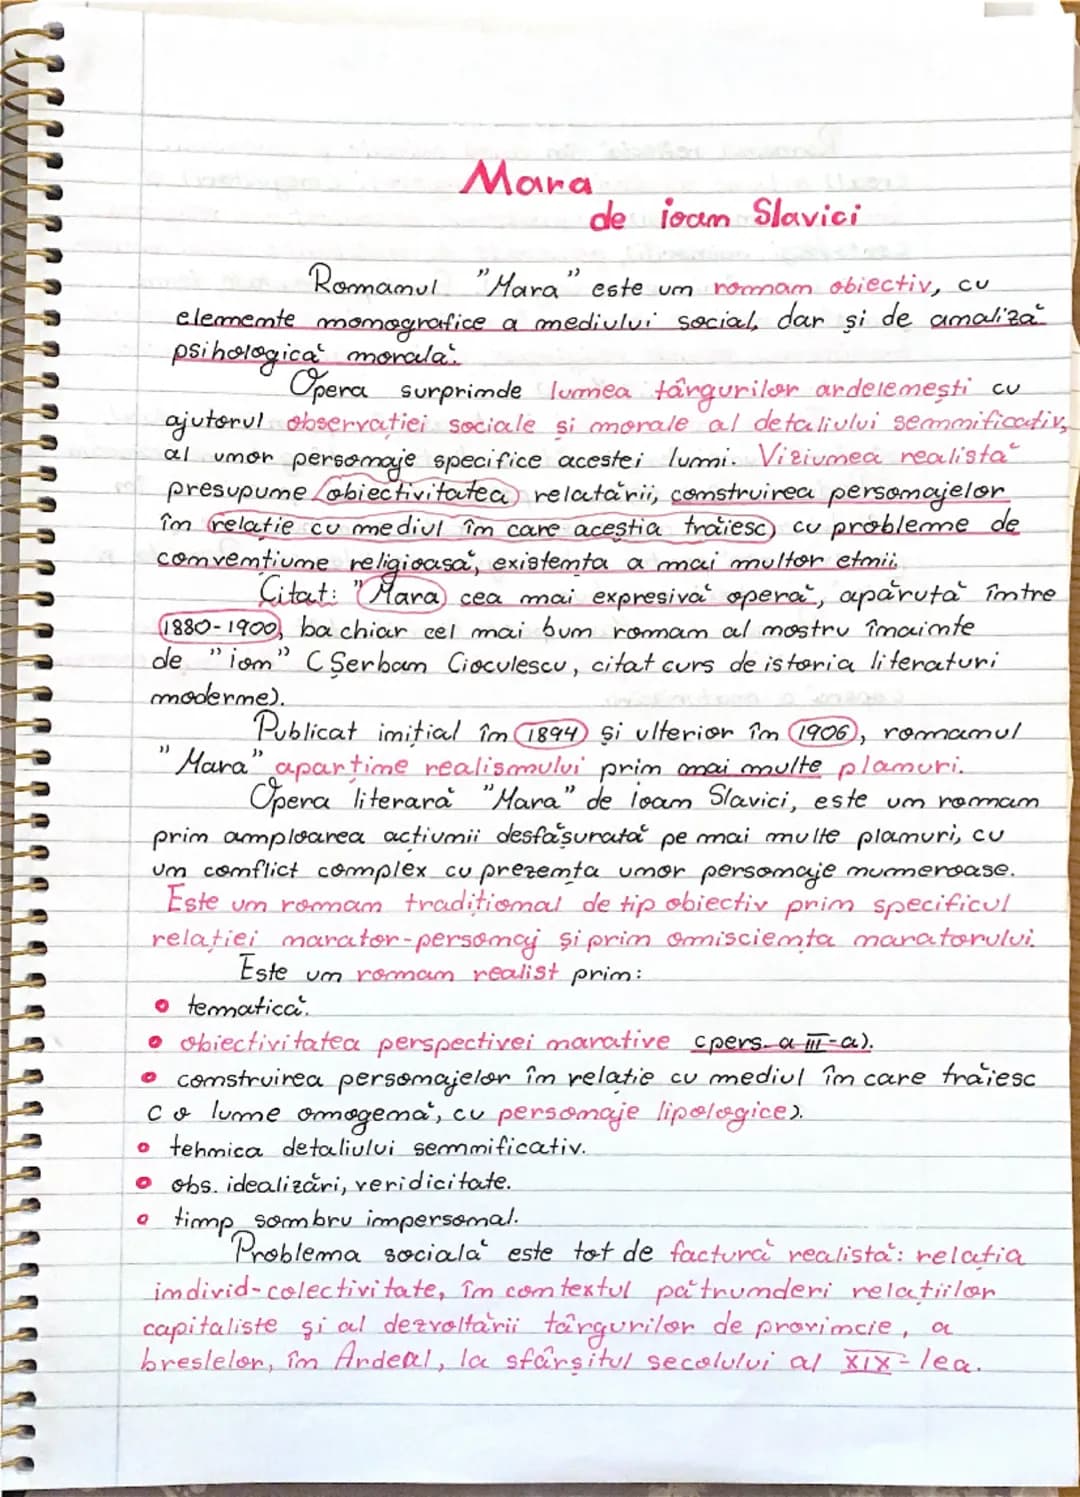 Mara
de ioan Slavici
Romanul "Mara" este un roman obiectiv, cu
elemente monografice a mediului social, dar și de analiză
psihologică morală.
Opera surprinde lumea târgurilor ardelenești cu
ajutorul observației sociale și morale al detaliului semnificativ,
al unor personaje specifice acestei lumi. Viziunea realistă
presupune obiectivitatea relatării, construirea personajelor
în relație cu mediul în care aceștia trăiesc, cu probleme de
convențiune religioasă, existența a mai multor etnii.
Citat: "Mara, cea mai expresivă operă, apărută între
1880-1900, ba chiar cel mai bun roman al nostru înainte
de "ion" (Șerban Cioculescu, citat curs de istoria literaturi
moderne).
Publicat inițial în 1894 și ulterior în 1906, romanul
"Mara" aparține realismului prin mai multe planuri.
Opera literară "Mara" de Ioan Slavici, este un roman
prin amploarea acțiunii desfășurată pe mai multe planuri, cu
un conflict complex cu prezența unor personaje numeroase.
Este un roman tradițional de tip obiectiv prin specificul
relației narator-personaj și prin omisciența naratorului.
Este un roman realist prin:
• tematică.
• obiectivitatea perspectivei narative (pers. a III-a).
• construirea personajelor în relație cu mediul în care trăiesc
(o lume omogenă, cu personaje lipologice).
• tehnica detaliului semnificativ.
• obs. idealizări, veridicitate.
• timp sombru impersonal.
Problema socială este tot de factură realistă: relația
individ-colectivitate, în contextul pătrunderi relațiilor
capitaliste și al dezvoltării târgurilor de provincie, a
breslelor, în Ardeal, la sfârșitul secolului al XIX-lea.